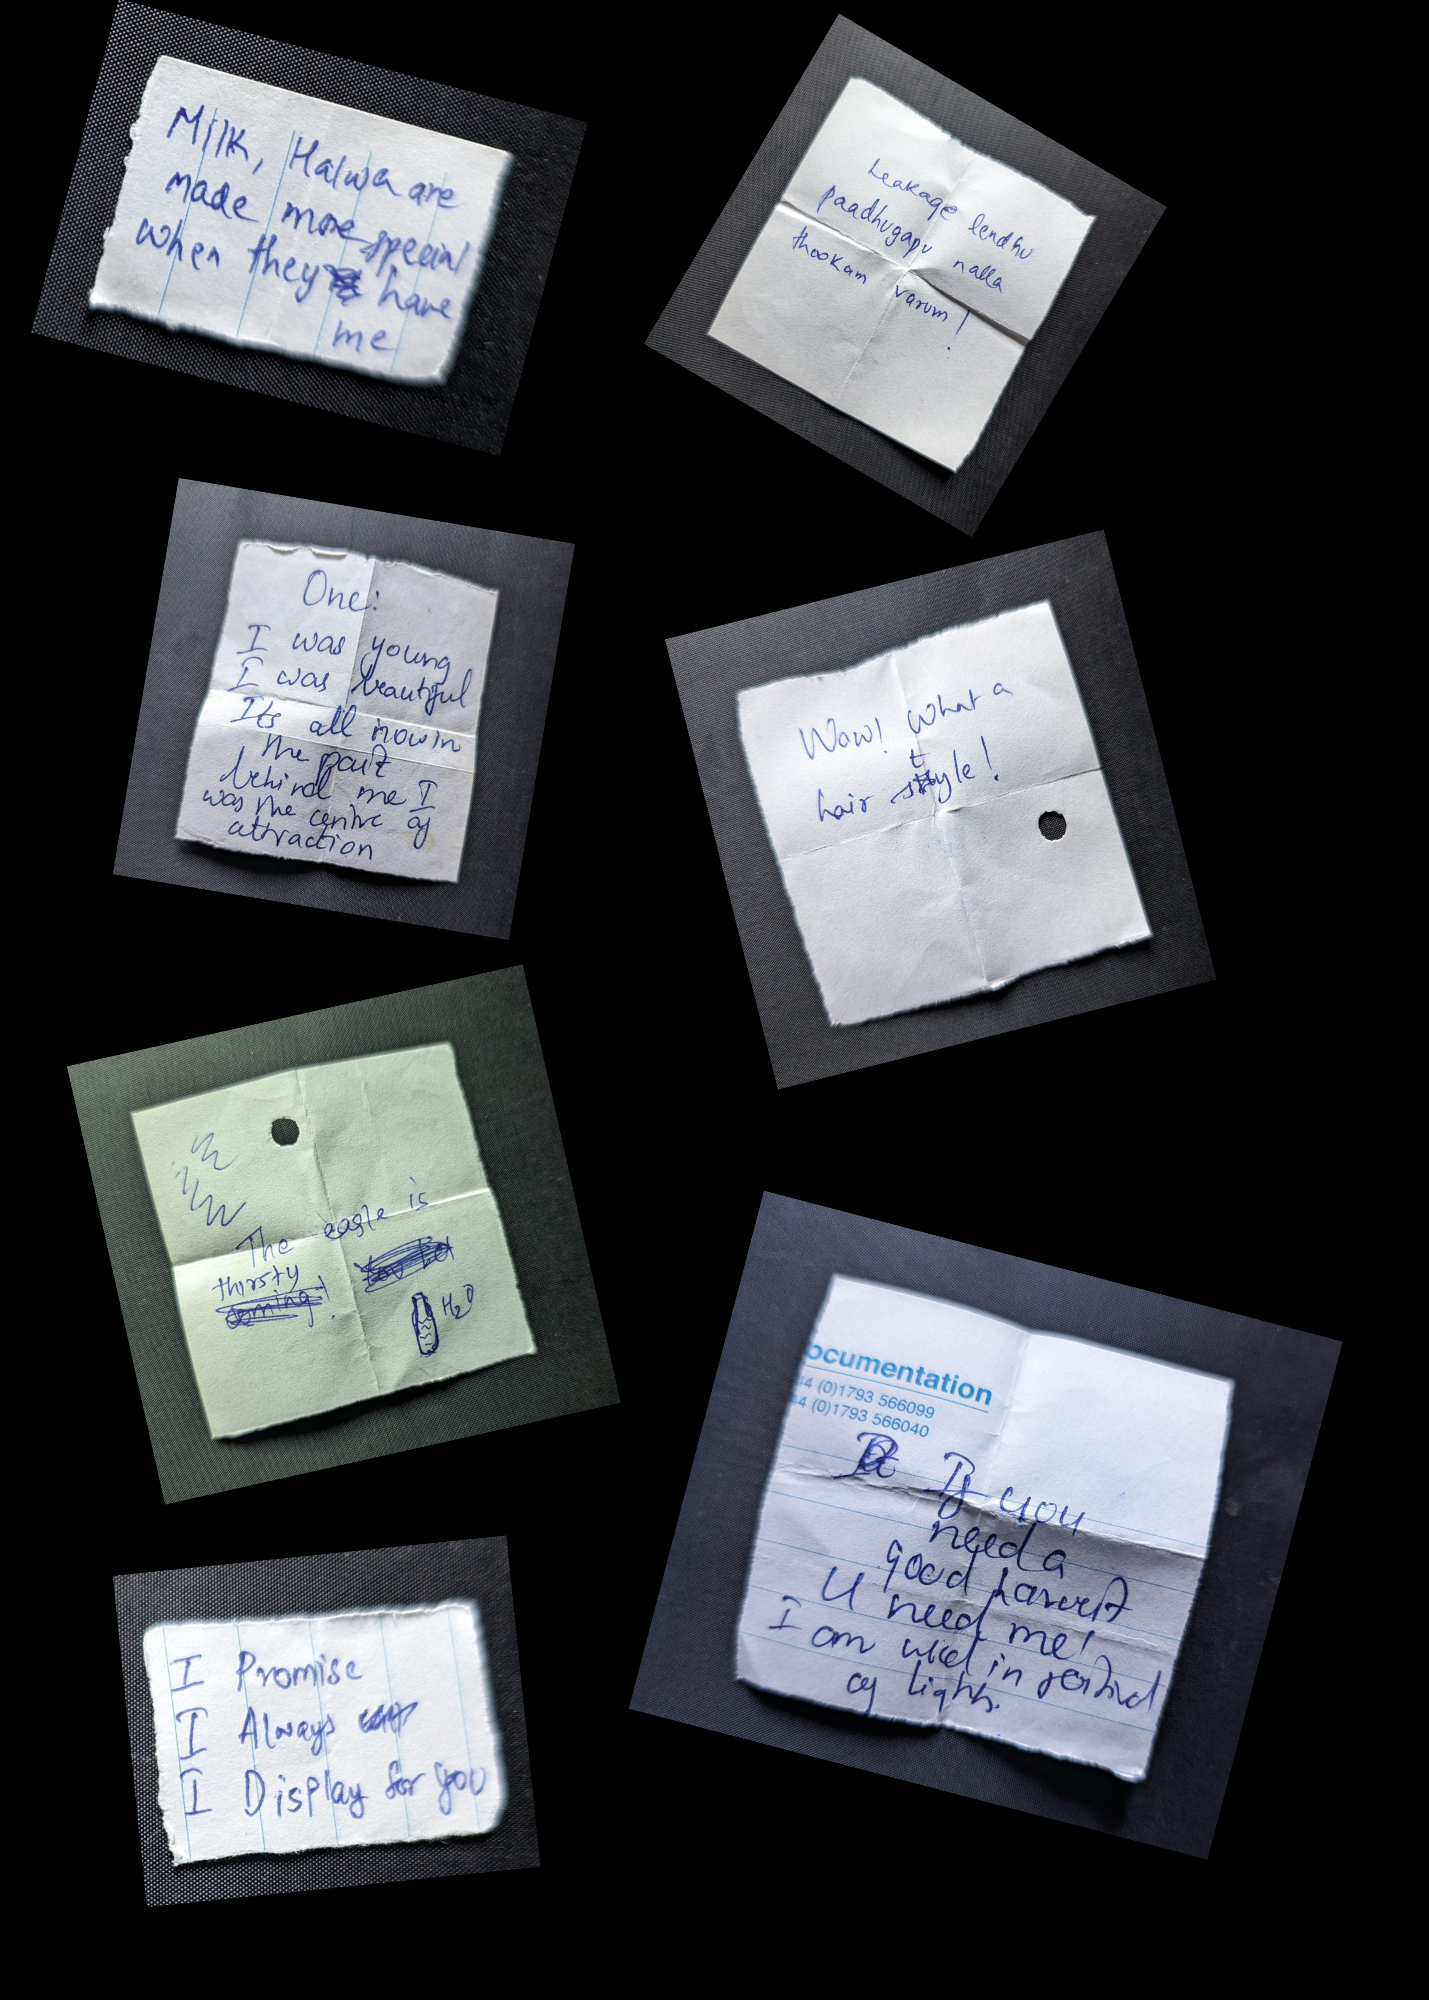 Milk, Halwa are
made more special
when they have
me
Leakage lendhu
paadhugapu nalla
thookam varum!
One:
I was young
I was beautiful
Its all now in
the past
behind me I
was the centre of
attraction
Wow! What a
hair style!
The eagle is
thirsty
H2O
ocumentation
44 (0)1793 566099
44 (0)1793 566040
If you
need a
good harvest
U need me!
I am used in festival
of lights.
I Promise
I Always
I Display for you